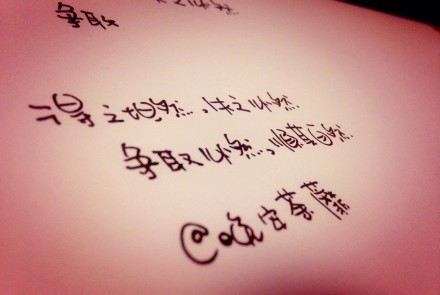 争取
得之坦然,失之必然
争取必然,顺其自然
@晚安荼蘼